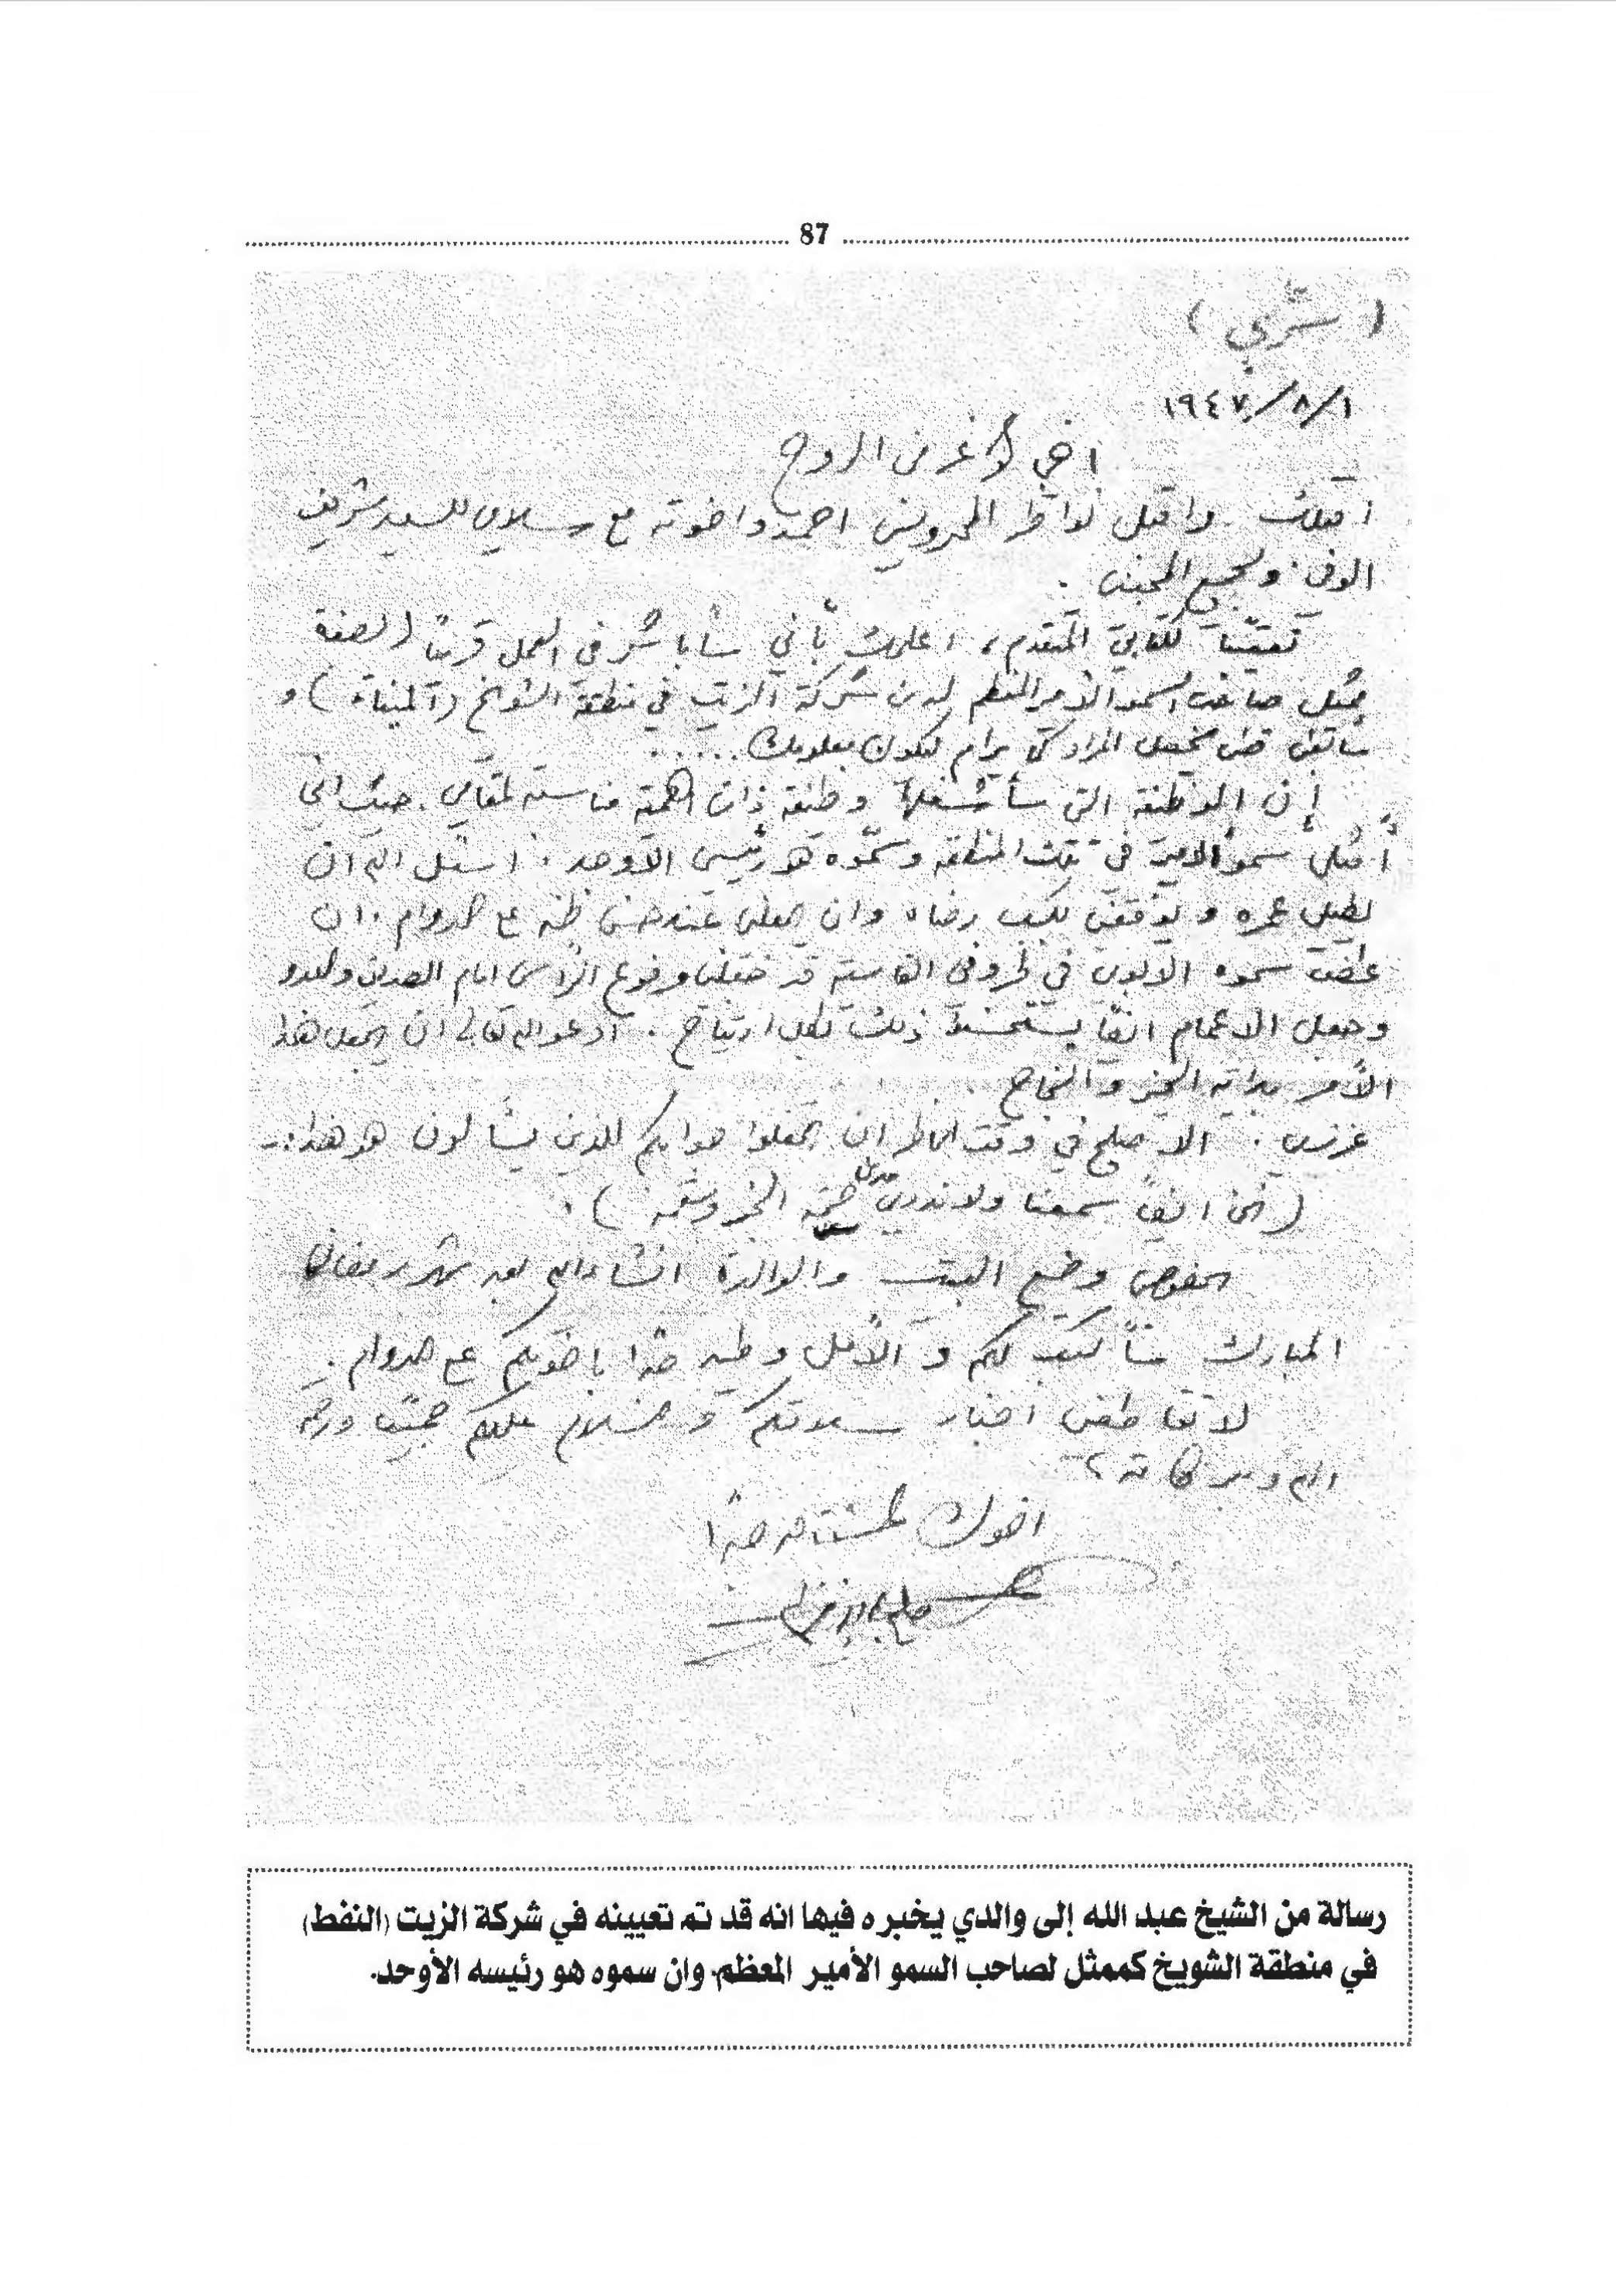 87
( سري )
١٩٤٧/٨/١
اخي الأعز من الروح
اقبلك واقبل نواظر المحروس احمد واخوته مع سلامي للسيد شريف
الوفي ولجميع المحبين .
كتابي المتقدم، اعلمك بأني سأباشر في العمل قريباً بصفة
ممثل صاحب السمو الأمير المعظم لدى شركة الزيت في منطقة الشويخ (الميناء) و
المرام ليكون بمعلومك.....
إن الوظيفة التي سأشغلها وظيفة ذات اهمية مناسبة لمقامي. حيث اني
أمثل سمو الأمير في تلك المنطقة وسموه هو رئيسي الأوحد. اسئل الله ان
يطيل عمره و يوفقني لكسب رضاه وان يجعلني عند حسن ظنه على الدوام. ان
عطف سموه الأبوي في ظروفي القاسية قد جعلني مرفوع الرأس امام الصديق والعدو
وجعل الاعمام ايضاً ذلك بكل ارتياح. ادعو الله تعالى ان يجعل هذا
الأمر بداية الخير والنجاح.
عزيزي. الاصلح في وقت الحاضر ان تجعلوا جوابكم للذين يسألون هو هذا:-
(نحن ايضاً سمعنا ولا ندري مدى صحة الخبر وسقمه).
بخصوص وضع البيت والوالدة انشاءالله بعد شهر رمضان
المبارك سأكتب لكم و الأمل وطيد جداً باخوتكم على الدوام.
لا تقاطعني اخبار سلامتكم والسلام عليكم جميعاً ورحمة
الله وبركاته
اخوك المشتاق جداً
رسالة من الشيخ عبد الله إلى والدي يخبره فيها انه قد تم تعيينه في شركة الزيت (النفط)
في منطقة الشويخ كممثل لصاحب السمو الأمير المعظم، وان سموه هو رئيسه الأوحد.